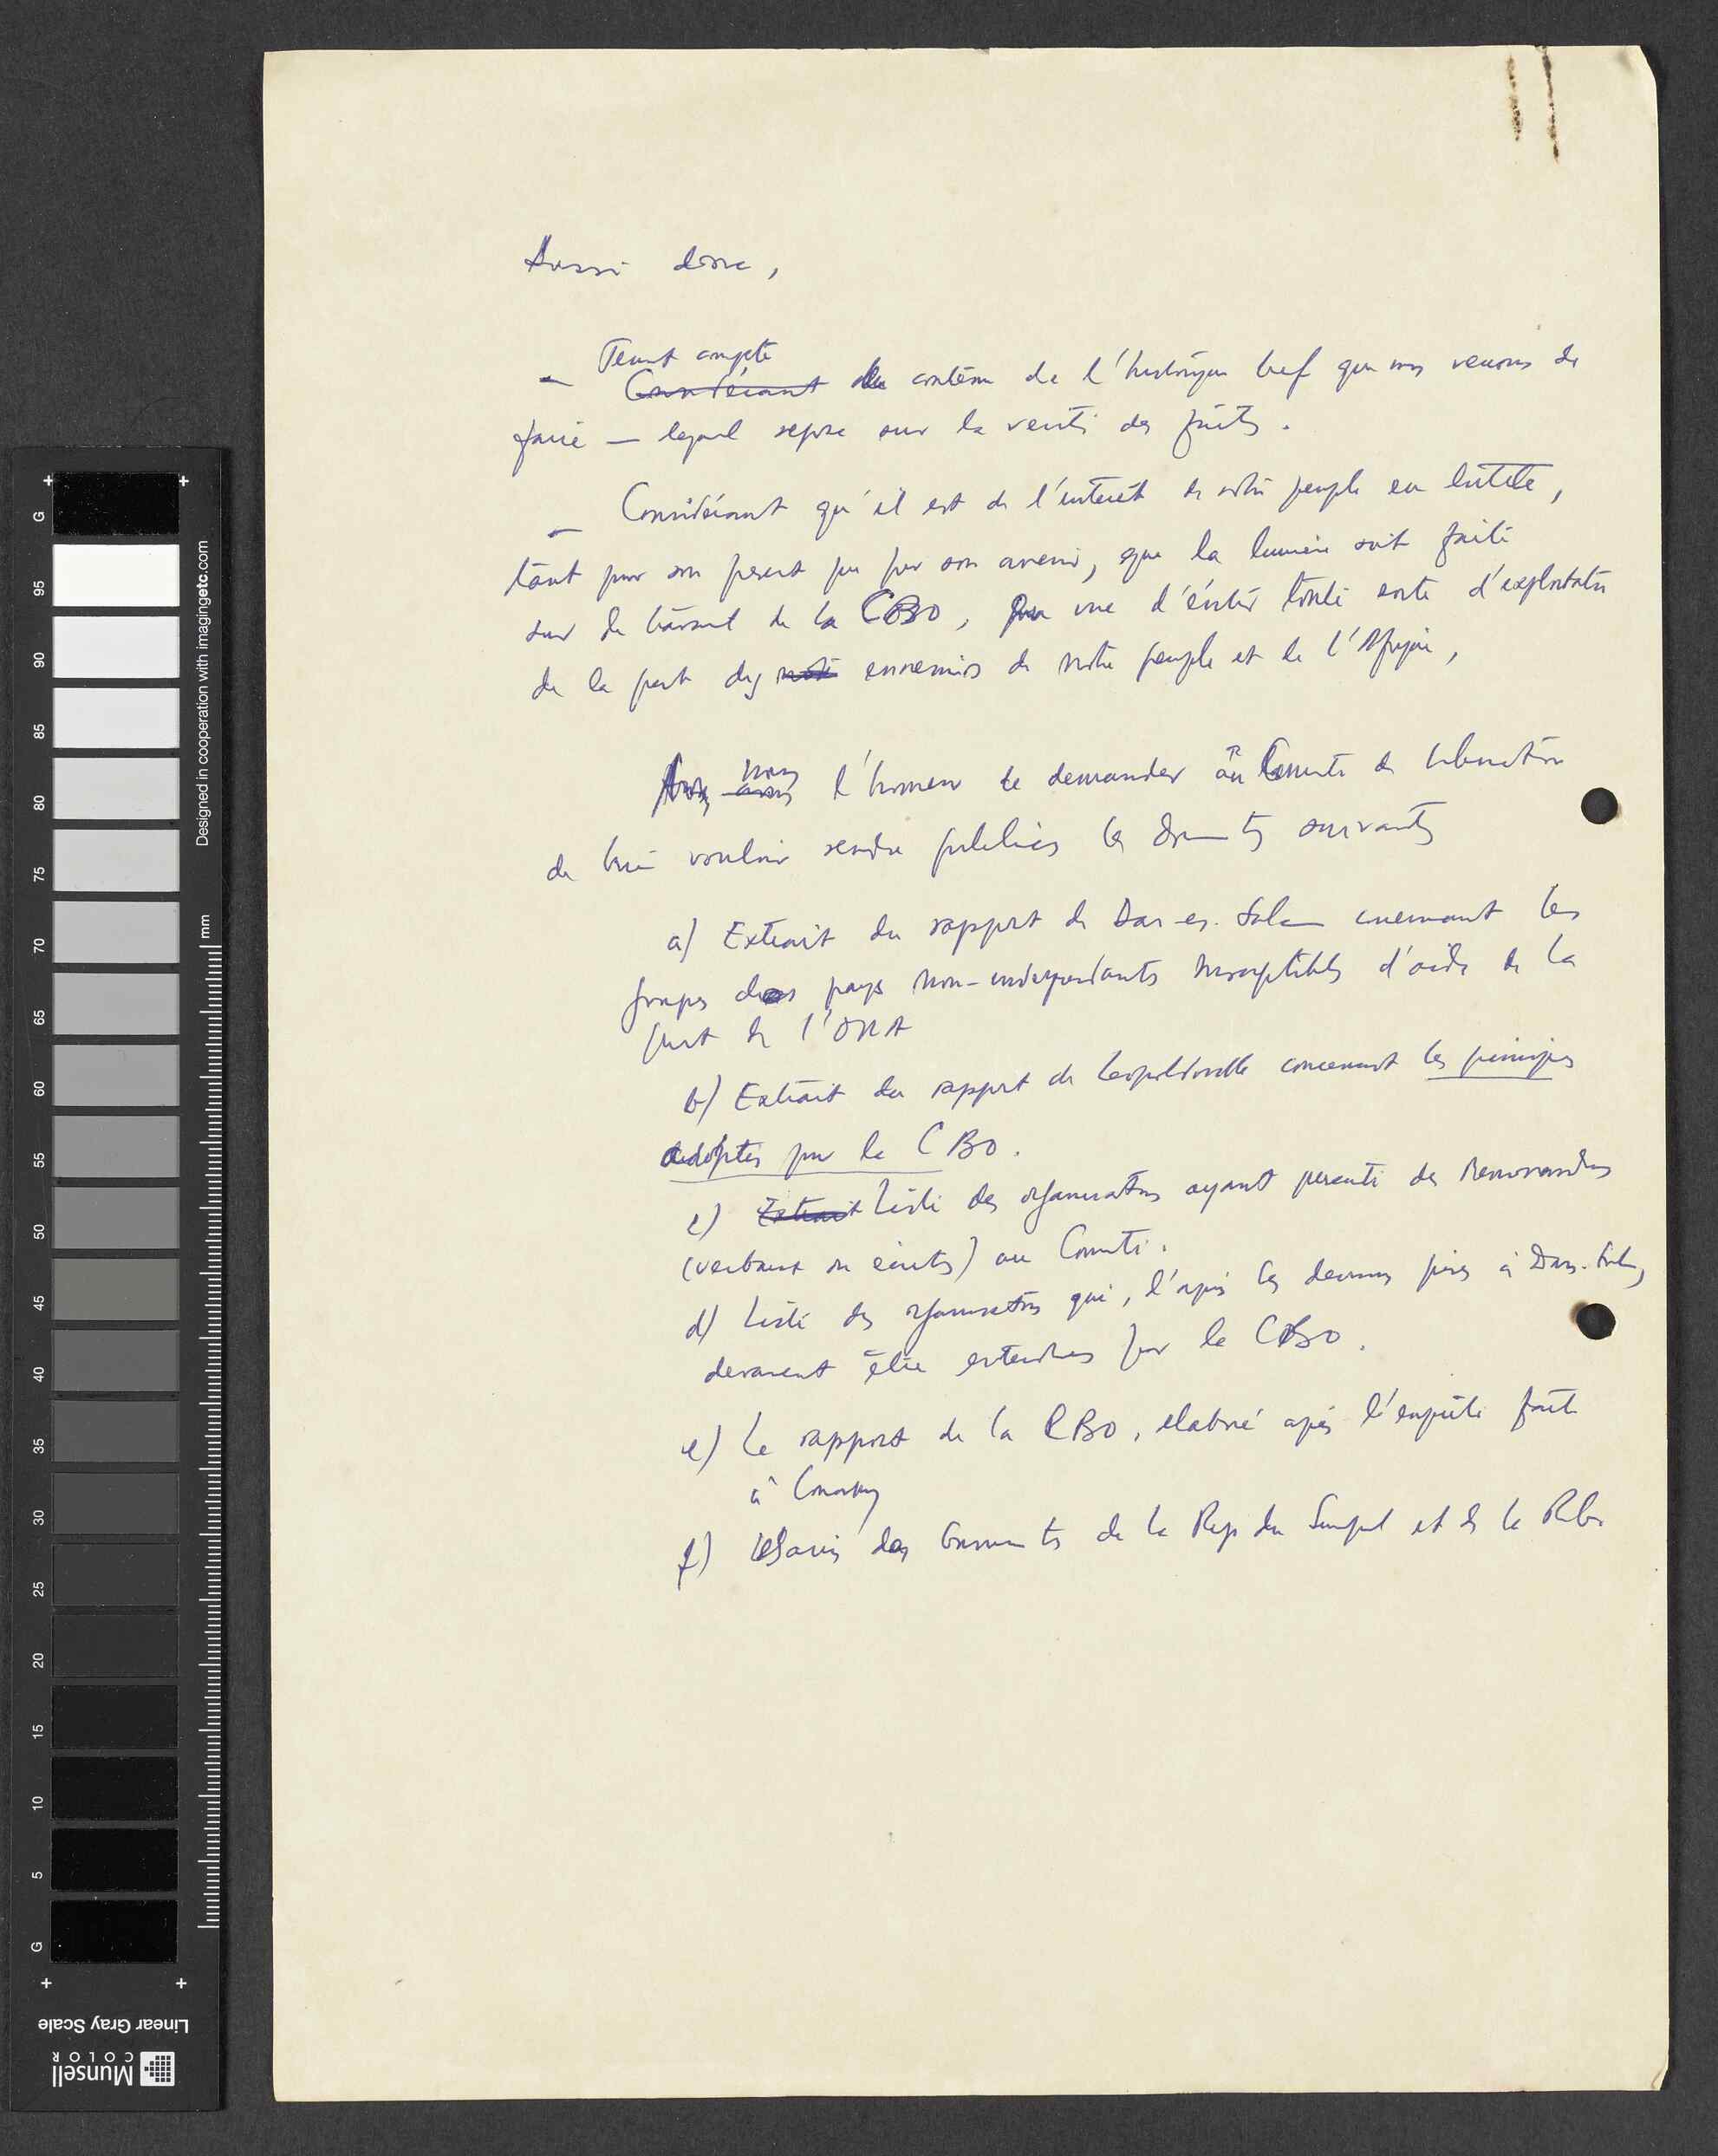 Aussi donc,
Tenant compte
– Considérant du contenu de l'historique bref que nous venons de
faire — lequel repose sur la vérité des faits.
– Considérant qu'il est de l'intérêt de notre peuple en lutte,
tant pour son présent que pour son avenir, que la lumière soit faite
sur le travail de la CBO, vue d'éviter toute sorte d'exploitation
de la part des ennemis de notre peuple et de l'Afrique,
nous
avons l'honneur de demander au Comité de Libération
de bien vouloir rendre publics les documents suivants
a) Extrait du rapport de Dar-es-Salam concernant les
groupes des pays non-indépendants susceptibles d'aide de la
part de l'OUA
b) Extrait du rapport de Leopoldville concernant les principes
adoptés par le CBO.
c) Extrait Liste des organisations ayant présenté des Memorandus
(verbaux ou écrits) au Comité.
d) Liste des organisations qui, d'après les décisions prises à Dar-Salam,
devraient être entendues par le CBO.
e) Le rapport de la CBO, élaboré après l'enquête faite
à Conakry
f) des documents de la Rep du Senegal et de la